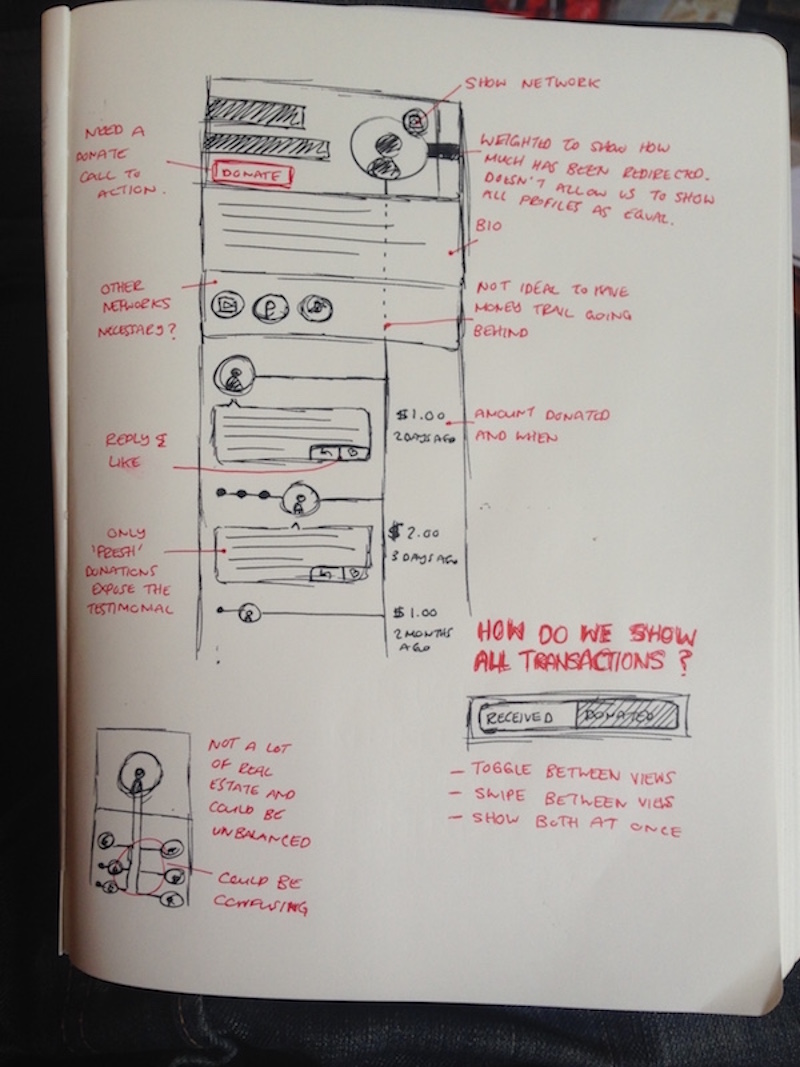 SHOW NETWORK
NEED A
DONATE
CALL TO
ACTION.
DONATE
WEIGHTED TO SHOW HOW
MUCH HAS BEEN REDIRECTED.
DOESN'T ALLOW US TO SHOW
ALL PROFILES AS EQUAL.
BIO
OTHER
NETWORKS
NECESSARY?
NOT IDEAL TO HAVE
MONEY TRAIL GOING
BEHIND
$1.00
2 DAYS AGO
AMOUNT DONATED
AND WHEN
REPLY &
LIKE
ONLY
'FRESH'
DONATIONS
EXPOSE THE
TESTIMONIAL
$2.00
3 DAYS AGO
$1.00
2 MONTHS
AGO
HOW DO WE SHOW
ALL TRANSACTIONS?
RECEIVED DONATED
- TOGGLE BETWEEN VIEWS
- SWIPE BETWEEN VIEWS
- SHOW BOTH AT ONCE
NOT A LOT
OF REAL
ESTATE AND
COULD BE
UNBALANCED
COULD BE
CONFUSING